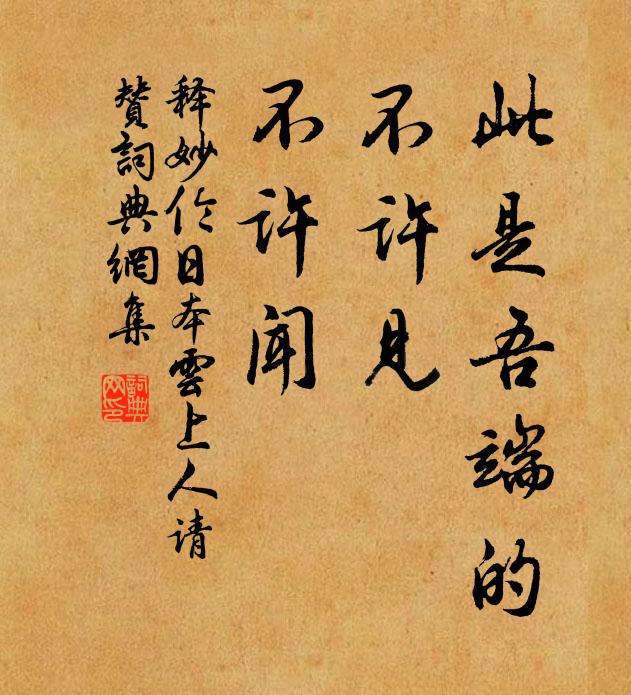 此是吾端的
不许见
不许闻
释妙伦日本雲上人请
赞詞典網集
詞典网印